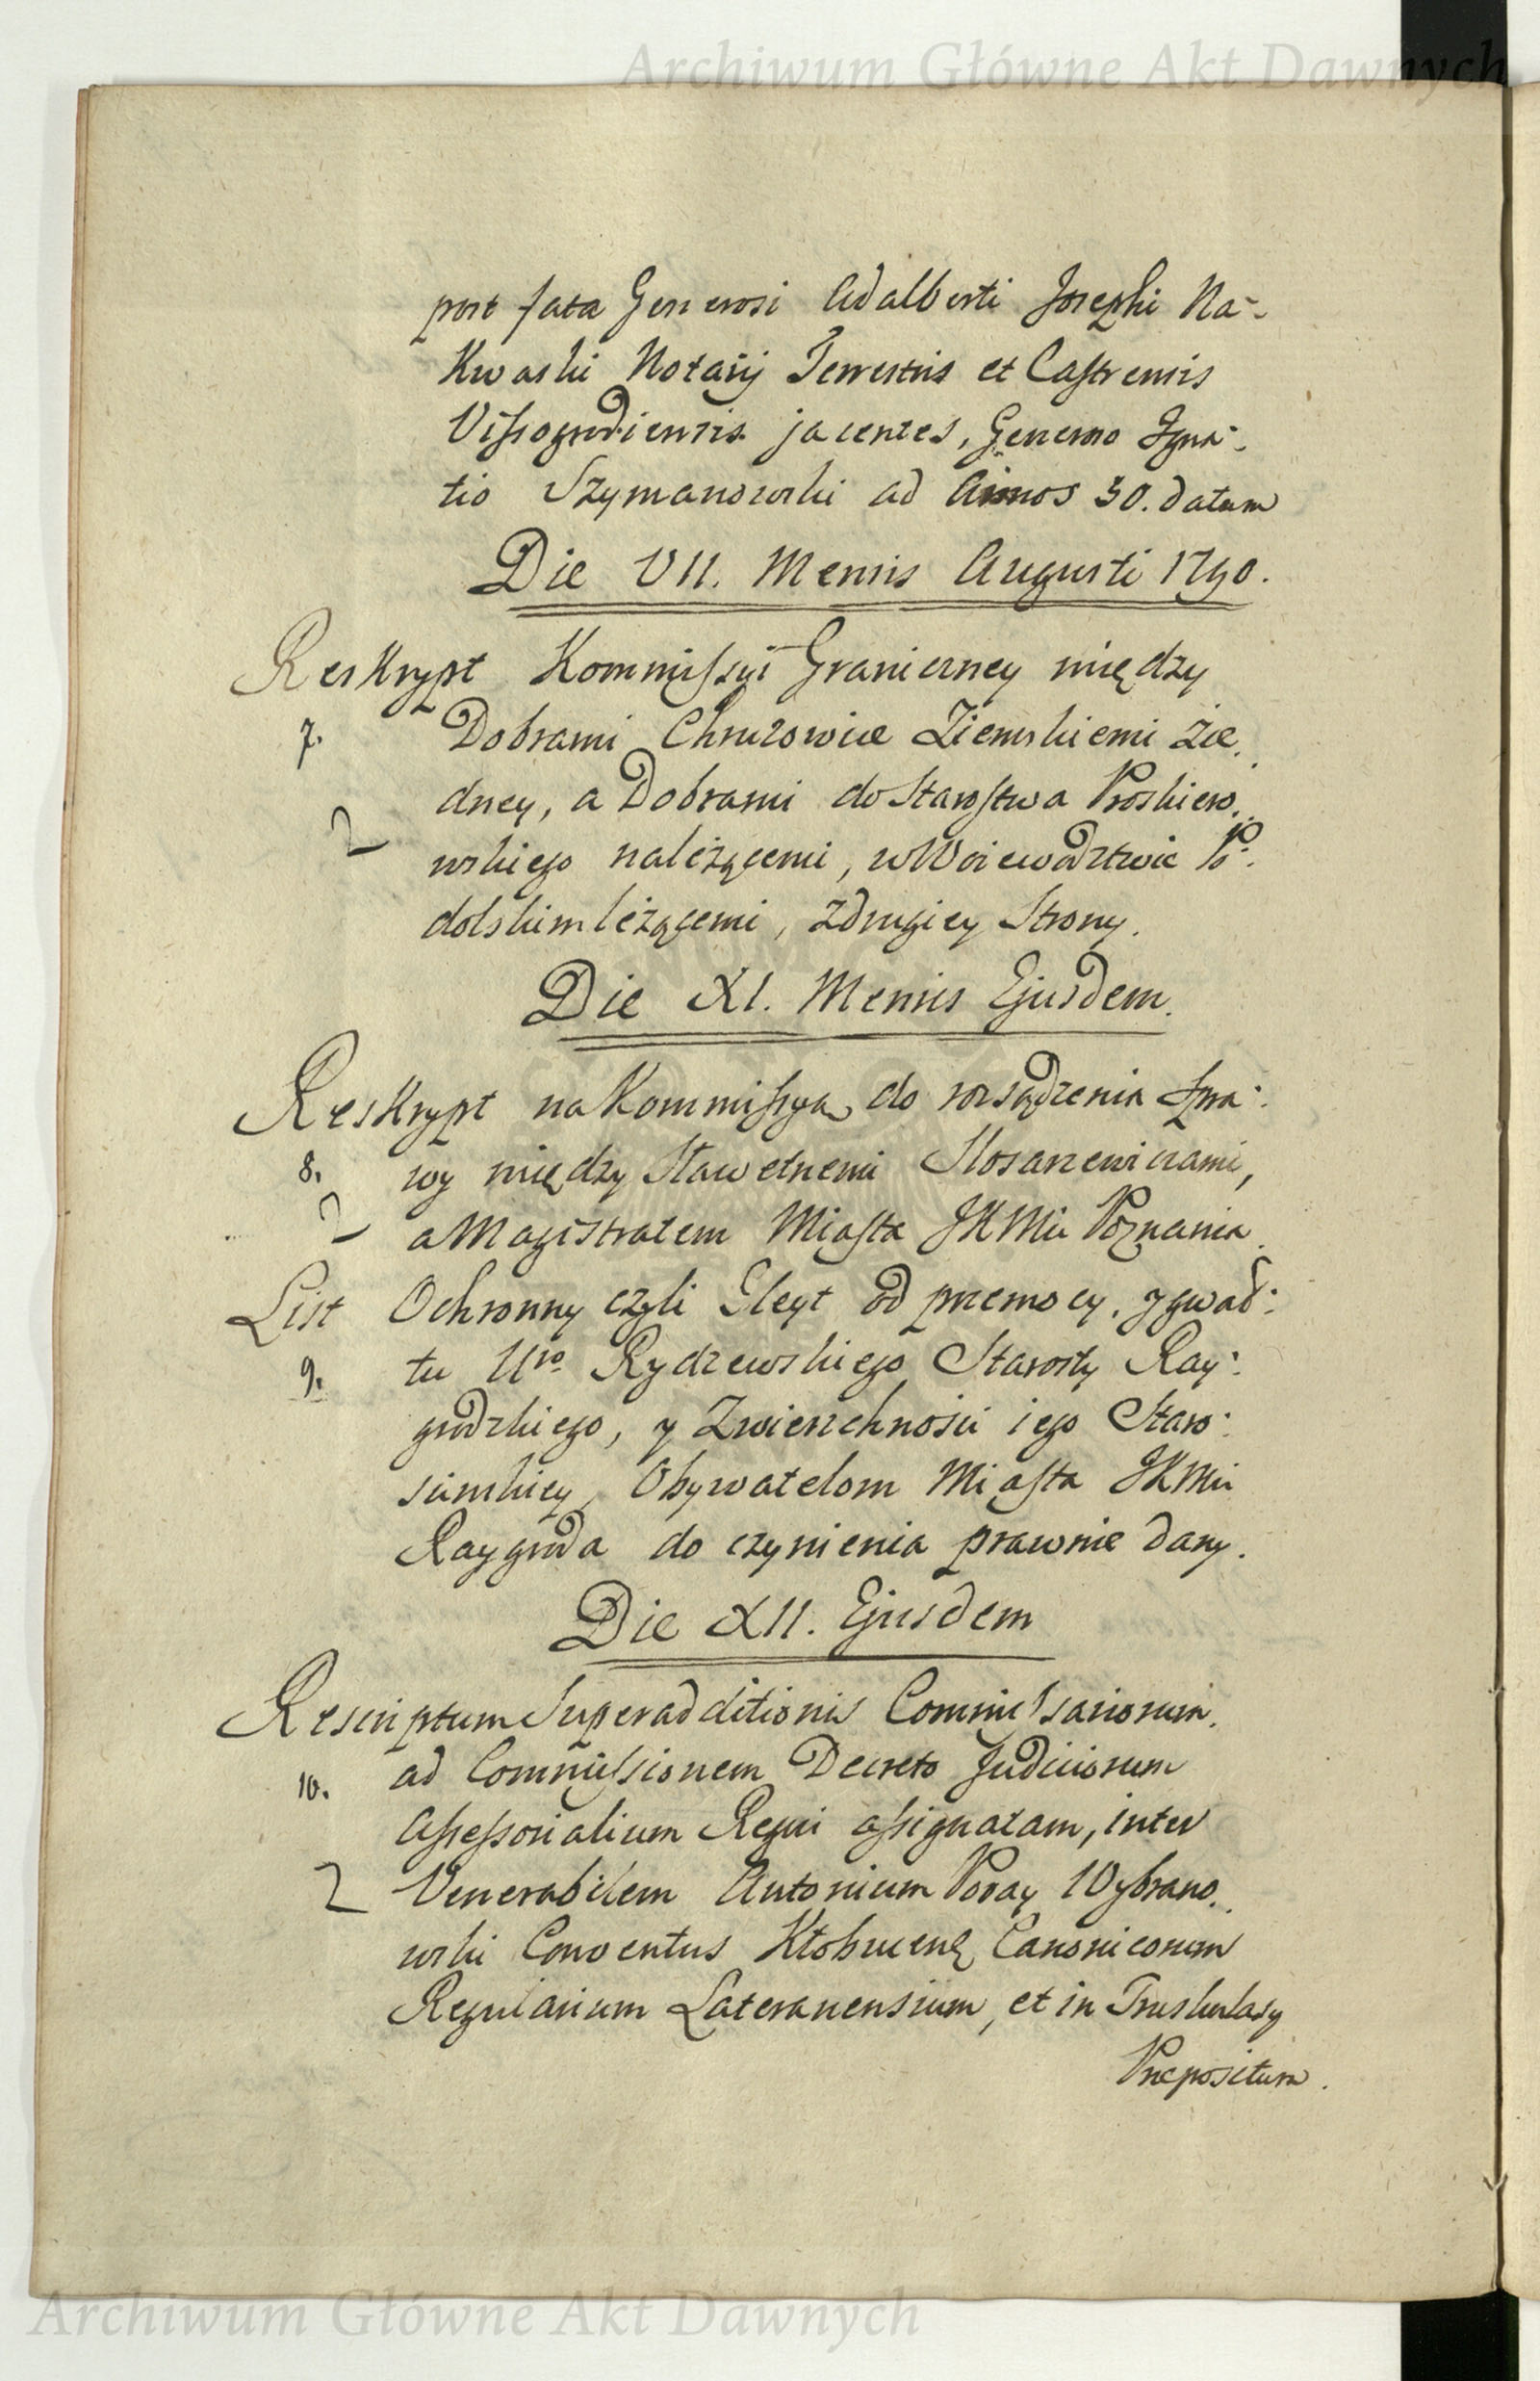 Archiwum Główne Akt Dawnych
post fata Generosi Adalberti Josephi Na-
Kwaski Notarij Terrestris et Castrensis
Vissogrodiensis jacentes, Generoso Igna-
tio Szymanowski ad Annos 50. datum
Die VII. Mensis Augusti 1790.
Reskrypt Kommissyi Graniczney między
7. Dobrami Chruzowice Ziemskiemi zie-
dney, a Dobrami do Starostwa Proskiro-
wskiego należącemi, w Woiewodztwie Po-
dolskim leżącemi, z drugiey Strony.
Die XI. Mensis Ejusdem.
Reskrypt na Kommissyą do rozsądzenia Spra-
8. wy między Sławetnemi Slosarzewiczami,
a Magistratem Miasta JKMci Poznania.
List Ochronny czyli Gleyt od przemocy, y gwał-
9. tu Uro Rydzewskiego Starosty Ray-
grodzkiego, y Zwierzchności iego Staro-
scinskiey, Obywatelom Miasta JKMci
Raygroda do czynienia prawnie dany.
Die XII. Ejusdem
Rescriptum Superadditionis Commissariorum
10. ad Commissionem Decreto Judiciorum
Assessorialium Regni assignatam, inter
Venerabilem Antonium Poray Wybrano-
wski Conventus Kłobucens Canonicorum
Regularium Lateranensium, et in Truskolasy
Præpositum.
Archiwum Główne Akt Dawnych